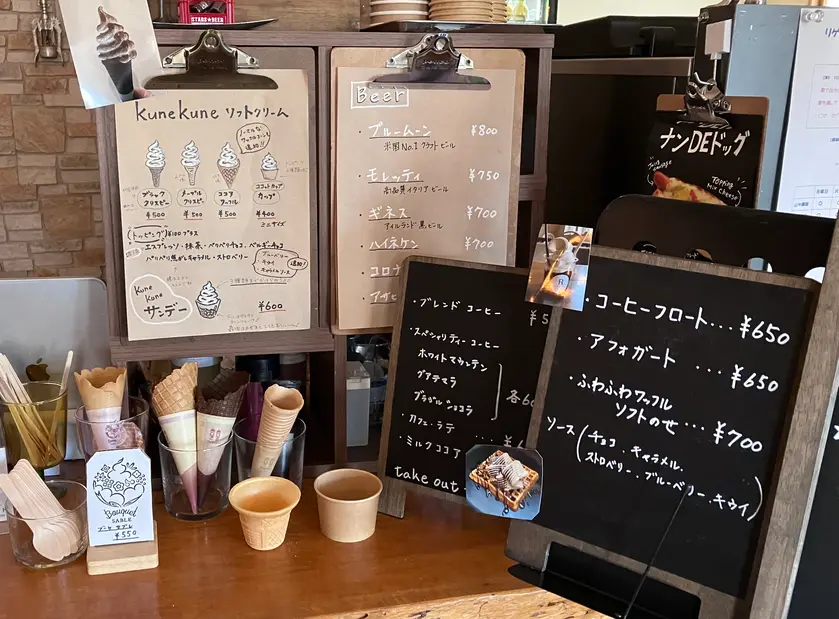 STARS★BEER
KuneKune ソフトクリーム
ノーマルな
ワッフルコーンも
追加!!
ブラック
クリスピー
¥500
メープル
クリスピー
¥500
ココア
ワッフル
¥500
ココットカップ
カップ
¥400
ミニサイズ
トッピング ¥100プラス
エスプレッソ・抹茶・パリパリチョコ、ベルギーチョコ
パリパリ焦がしキャラメル・ストロベリー
ブルーベリー
キウイ
キャラメルソース
追加!
Kune
Kune
サンデー
¥600
Beer
・ブルームーン ¥800
米国No.1クラフトビール
・モレッティ ¥750
高品質イタリアビール
・ギネス ¥700
アイルランド黒ビール
・ハイネケン ¥700
コロナ
アサヒ
ナンDEドッグ
Topping
Hot Cheese
・ブレンド コーヒー ¥5
・スペシャリティーコーヒー
ホワイトマウンテン
グアテマラ
各60
・カフェ・ラテ
・ミルクココア ¥6
take out
・コーヒーフロート...¥650
・アフォガート ...¥650
・ふわふわワッフル
ソフトのせ...¥700
ソース(チョコ.キャラメル.
ストロベリー.ブルーベリー.キウイ)
Bouquet
SABLE
ブーケサブレ
¥550